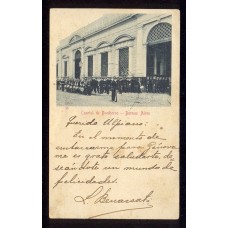 Cuartel de Bomberos - Buenos Aires
Querido Ulpiano:
En el momento de
embarcarme para Girona
me es grato saludarte de
seándote un mundo de
felicidades.
L. Benavent